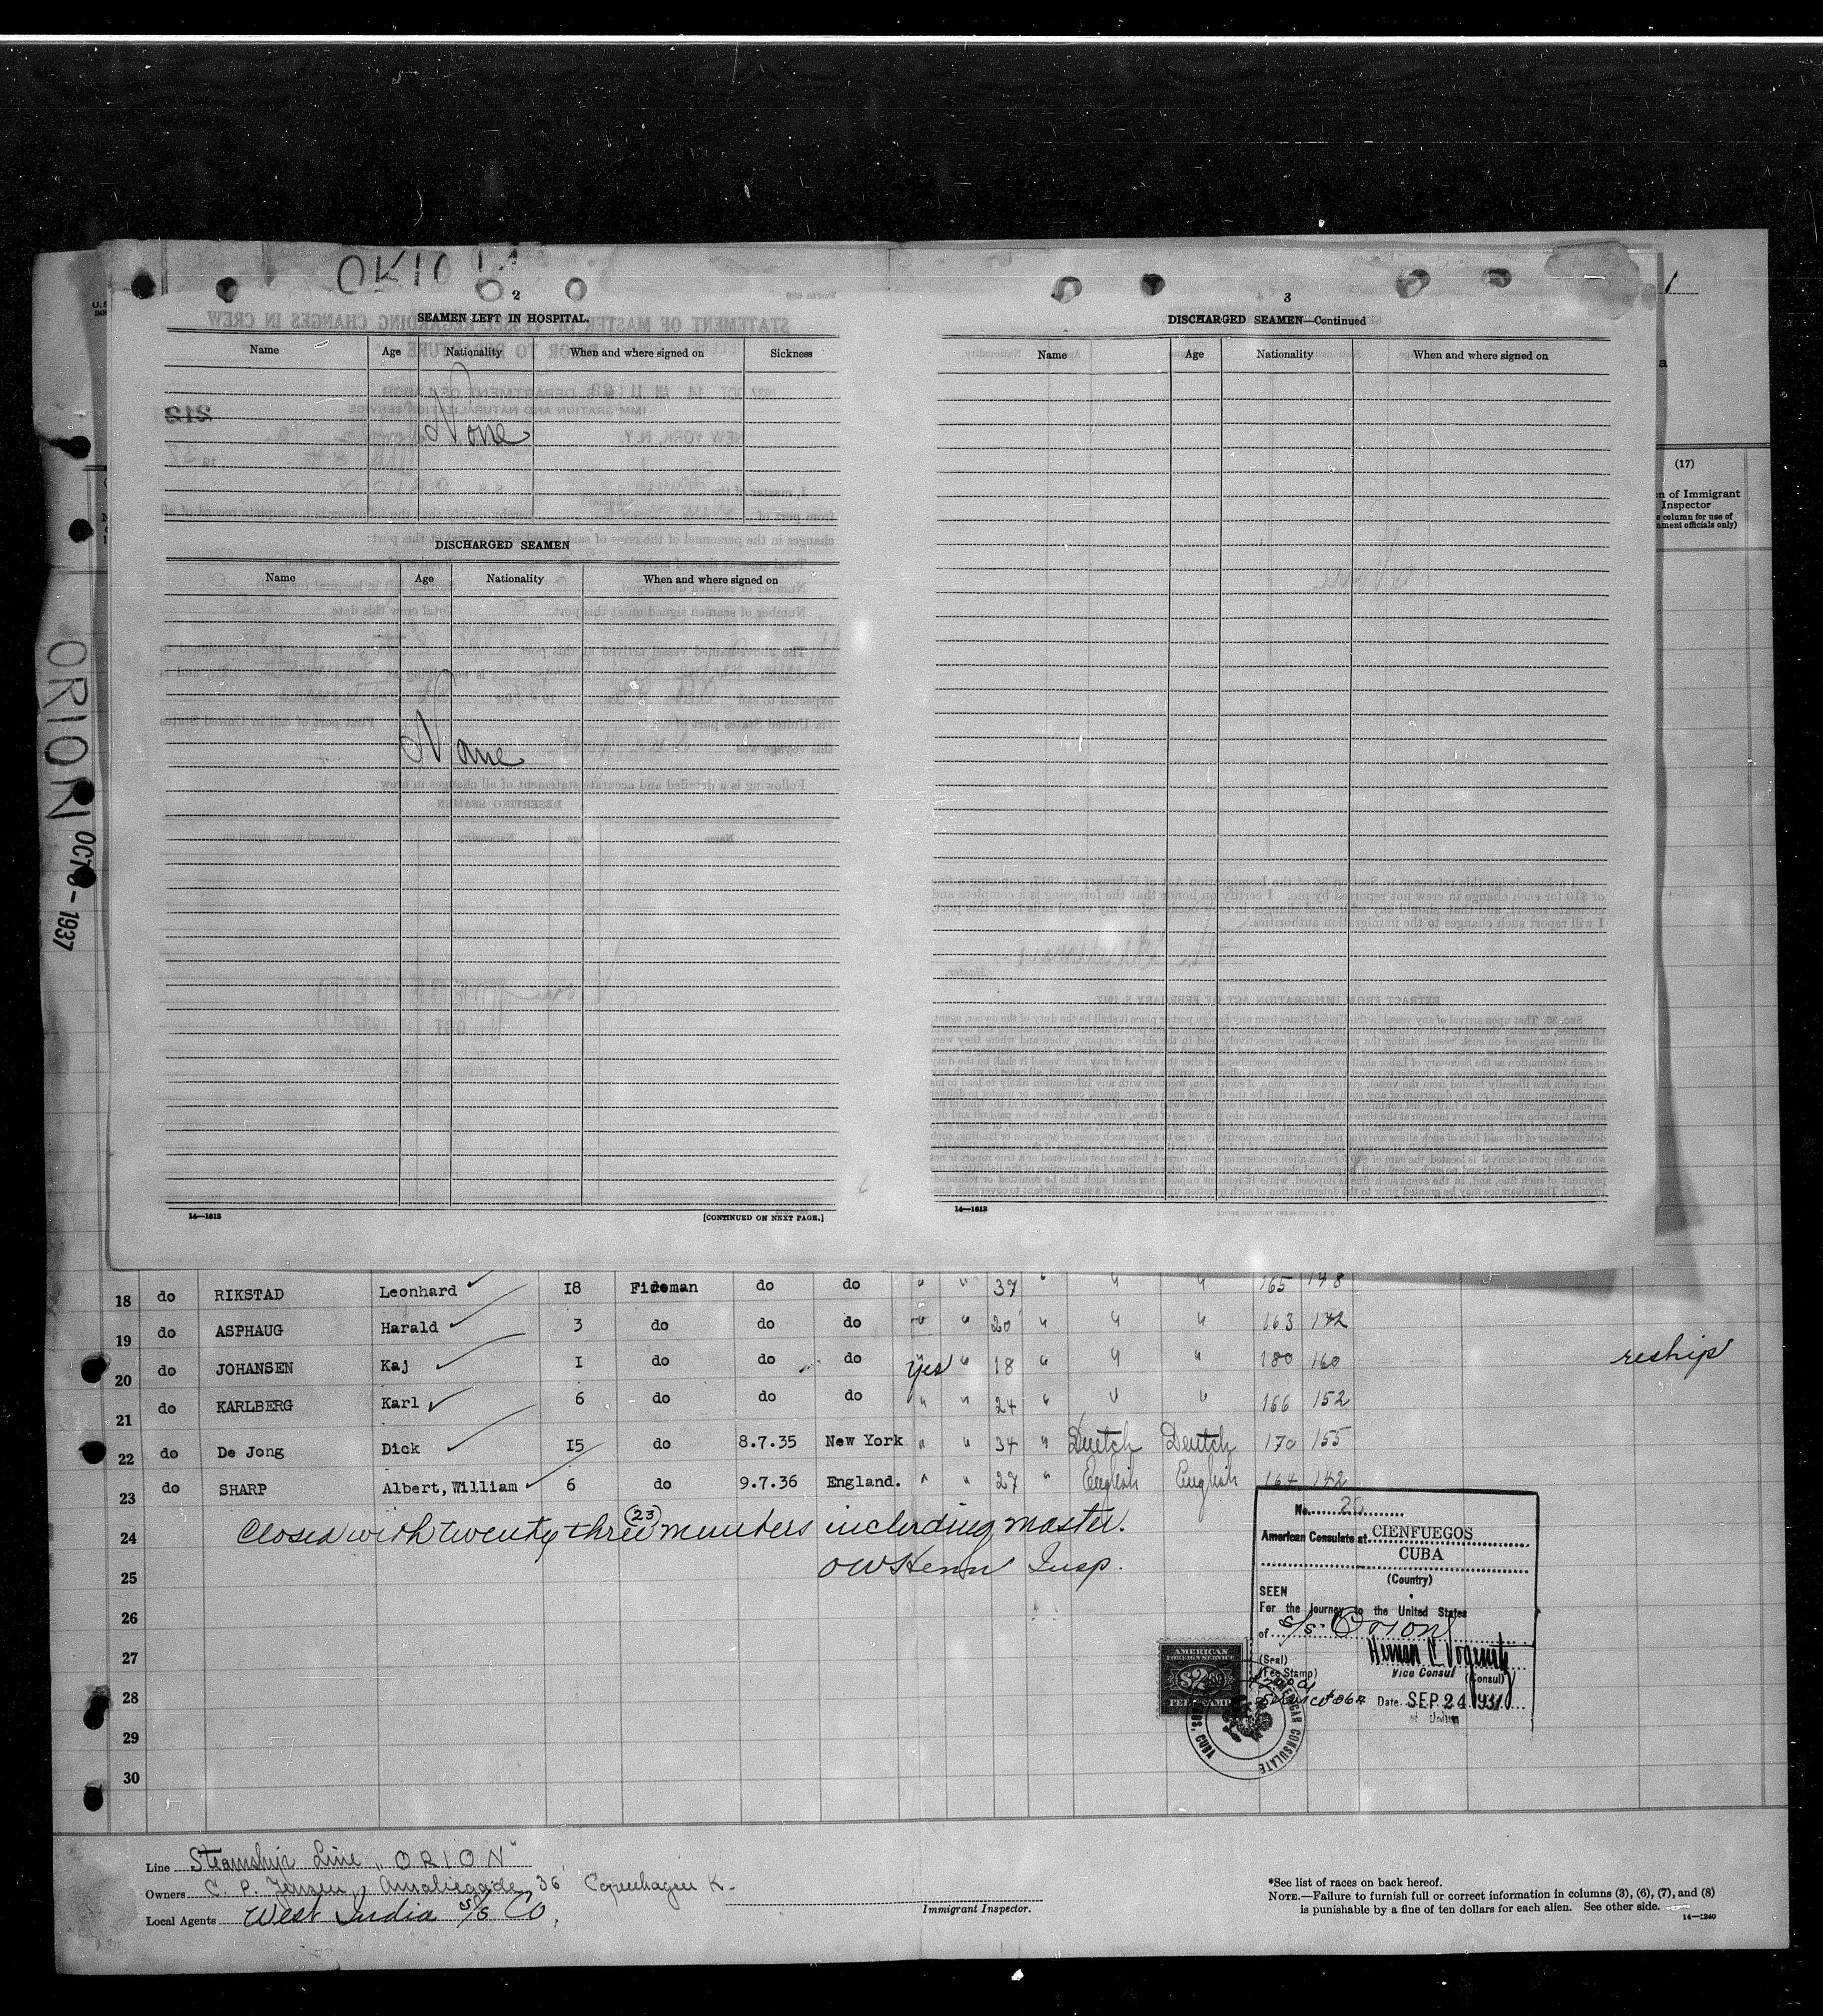 ORION
2
SEAMEN LEFT IN HOSPITAL.
Name Age Nationality When and where signed on Sickness
None
DISCHARGED SEAMEN
Name Age Nationality When and where signed on
None
14—1613 [CONTINUED ON NEXT PAGE.]
3
DISCHARGED SEAMEN—Continued
Name Age Nationality When and where signed on
14—1613
ORION
OCT 8 - 1937
(17)
n of Immigrant
Inspector
column for use of
nment officials only)
18 do RIKSTAD Leonhard 18 Fireman do do " " 37 " " " 165 148
19 do ASPHAUG Harald 3 do do do " " 20 " " " 163 142
20 do JOHANSEN Kaj I do do do yes " 18 " " " 180 160 reship
21 do KARLBERG Karl 6 do do do " " 24 " " " 166 152
22 do De Jong Dick 15 do 8.7.35 New York " " 34 " Duetch Deutch 170 155
23 do SHARP Albert,William 6 do 9.7.36 England. " " 27 " English English 164 142
24 Closed with twenty three (23) members including master.
25 OW Henn Insp.
26
27
28
29
30
No. 26
American Consulate at CIENFUEGOS
CUBA
(Country)
SEEN
For the journey to the United States
of S/S. Orion
(Seal)
(Fee Stamp)
Vice Consul (Consul)
Date SEP 24 1937
AMERICAN
FOREIGN SERVICE
$2
FEE STAMP
AMERICAN CONSULATE
CUBA
Line Steamship Line „ORION"
Owners C. P. Jensen, Amaliegade 36 Copenhagen K.
Local Agents West India S/S Co.
Immigrant Inspector.
*See list of races on back hereof.
NOTE.—Failure to furnish full or correct information in columns (3), (6), (7), and (8)
is punishable by a fine of ten dollars for each alien. See other side.
14—1240